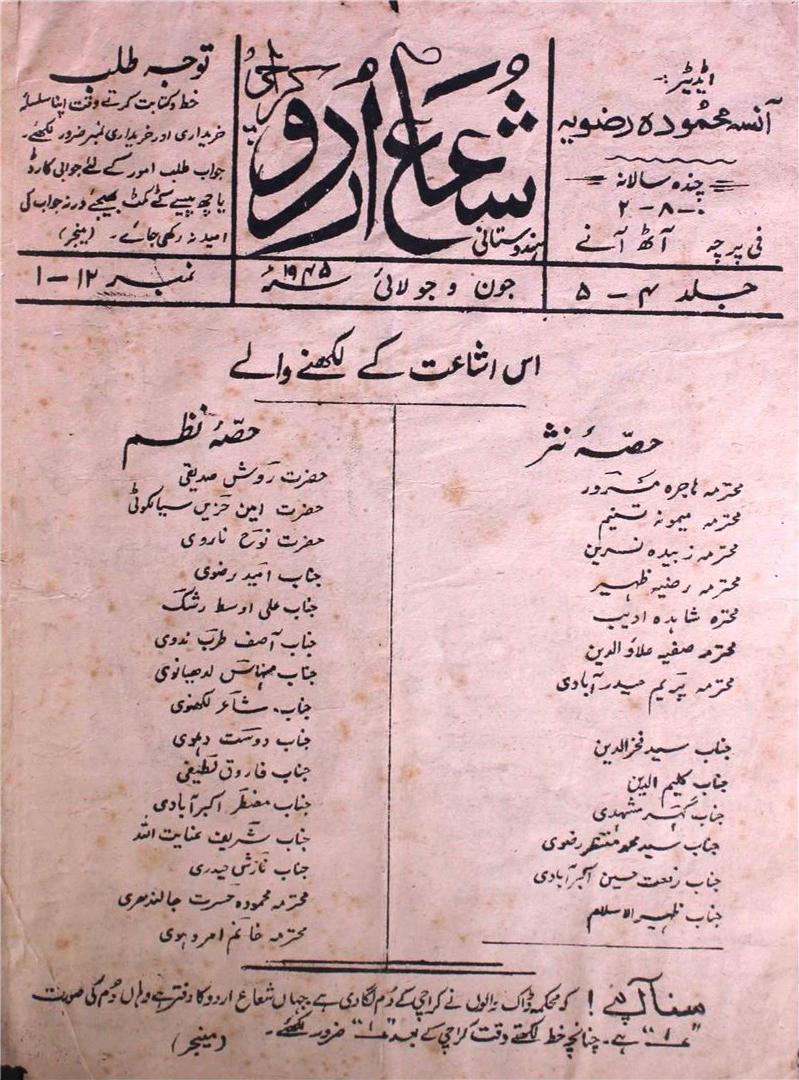 ایڈیٹر:-
آنسہ محمُودہ رضویہ
چندہ سالانہ
۲-۸-۰
فی پرچہ آٹھ آنے
شُعَاع اُردُو
کراچی
ہندوستانی
توجہ طلب
خط و کتابت کرتے وقت اپنا سلسلہ
خریداری اور خریداری نمبر ضرور لکھئے۔
جواب طلب امور کے لئے جوابی کارڈ
یا چھ پیسے کے ٹکٹ بھیجئے ورنہ جواب کی
امید نہ رکھی جائے۔ (مینجر)
جلد ۴-۵
جون و جولائی ۱۹۴۵ء
نمبر ۱۲-۱
اس اشاعت کے لکھنے والے
حصّۂ نثر
محترمہ ہاجرہ مسرور
محترمہ میمونہ تسنیم
محترمہ زبیدہ نسرین
محترمہ رضیہ ظہیر
محترہ شاہدہ ادیب
محترمہ صفیہ علاؤالدین
محترمہ پریم حیدرآبادی
جناب سید فخرالدین
جناب کلیم الدین
جناب گہر مشہدی
جناب سید محمد منتظر رضوی
جناب رفعت حسین اکبرآبادی
جناب ظہیر الاسلام
حصّۂ نظم
حضرت روش صدیقی
حضرت امین حزیں سیالکوٹی
حضرت نوح ناروی
جناب امید رضوی
جناب علی اوسط رشک
جناب آصف طرب ندوی
جناب منہاس لدھیانوی
جناب شاعر لکھنوی
جناب دوست دہلوی
جناب فاروق لطیفی
جناب مضطر اکبرآبادی
جناب شریف عنایت اللہ
جناب نازش حیدری
محترمہ محمودہ حسرت جالندھری
محترمہ خانم امروہوی
سنا آپ نے! کہ محکمہ ڈاک والوں نے کراچی کے دُم لگا دی ہے جہاں شعاع اردو کا دفتر ہے وہاں دُم کی صورت
"۱" ہے۔ چنانچہ خط لکھتے وقت کراچی کے بعد "۱" ضرور لکھئے۔ (مینجر)